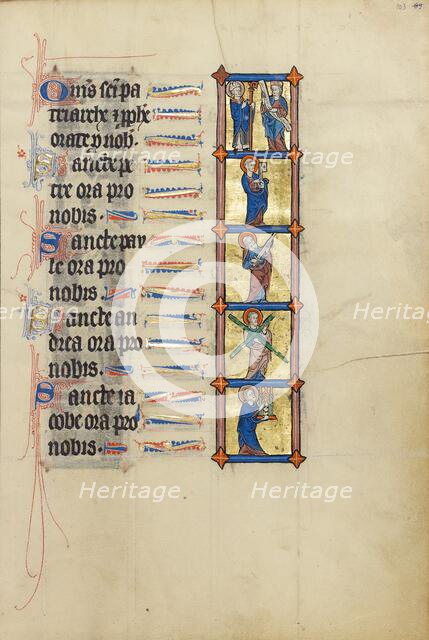 103 95
Om̄s sc̄i pa
triarche ⁊ ꝓphe
orate p nob̄.
Sancte pe
tre ora pro
nobis.
Sancte pau
le ora pro
nobis.
Sancte an
drea ora pro
nobis.
Sancte ia
cobe ora pro
nobis.
Heritage
Heritage
Heritage
Heritage
Heritage
Heritage
Heritage